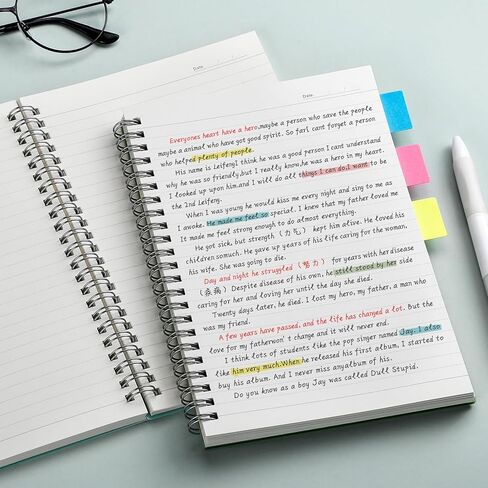 Date:
Date:
Everyones heart have a hero.maybe a person who save the people
maybe a animal who have got good spirit. So farI cant forget a person
who helped plenty of people.
His name is leifengI think he was a good person I cant understand
why he was so friendly.but I really know,he was a hero in my heart.
I looked up upon him.and I will do all things I can do.I want to be
the 2nd leifeng.
When I was young he would kiss me every night and sing to me as
I awoke. He made me feel so special. I knew that my father loved me
It made me feel strong enough to do almost everything.
He got sick, but strength (力气) kept him alive. He loved his
children somuch. He gave up years of his life caring for the woman,
his wife. She was going to die.
Day and night he struggled (努力) for years with her disease
(疾病) Despite disease of his own, he still stood by her side
caring for her and loving her until the day she died.
Twenty days later, he died. I lost my hero, my father, a man who
was my friend.
A few years have passed, and the life has changed a lot. But the
love for my fatherwon't change and it will never end.
I think lots of students like the pop singer named Jay. I also
like him very much.When he released his first album, I started to
buy his album. And I never miss anyalbum of his.
Do you know as a boy Jay was called Dull Stupid.